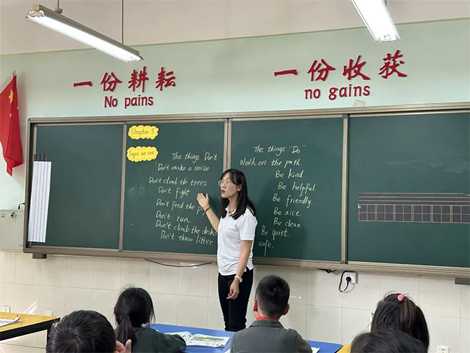 一份耕耘
No pains
一份收获
no gains
The things Don't
Don't make a noise
Don't climb the trees
Don't fight
Don't feed the
Don't run
Don't climb the desks
Don't throw litter
The things "Do"
Walk on the path
Be kind
Be helpful
Be friendly
Be nice
Be clean
Be quiet
safe.